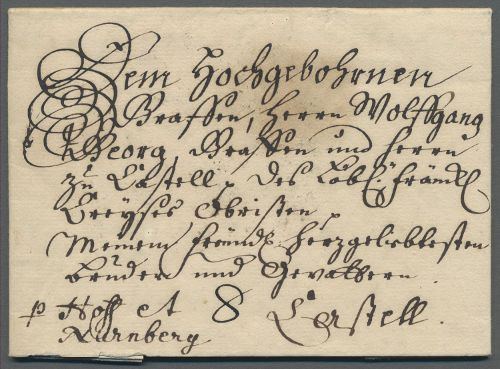 Dem Hochgebohrnen
Graffen, Herrn Wolffgang
Georg, Graffen und Herrn
zu Castell, des Löbl. fränck.
Creyses Obristen,
Meinem freündl. herzgeliebtesten
Bruder und Gevattern.
p Hoff et 8 Castell.
Nürnberg